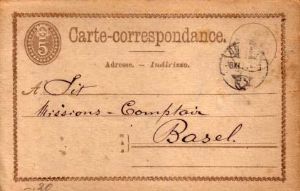 5
Carte-correspondance.
Adresse. — Indirizzo.
A Tit
Missions-Comptoir
Basel.